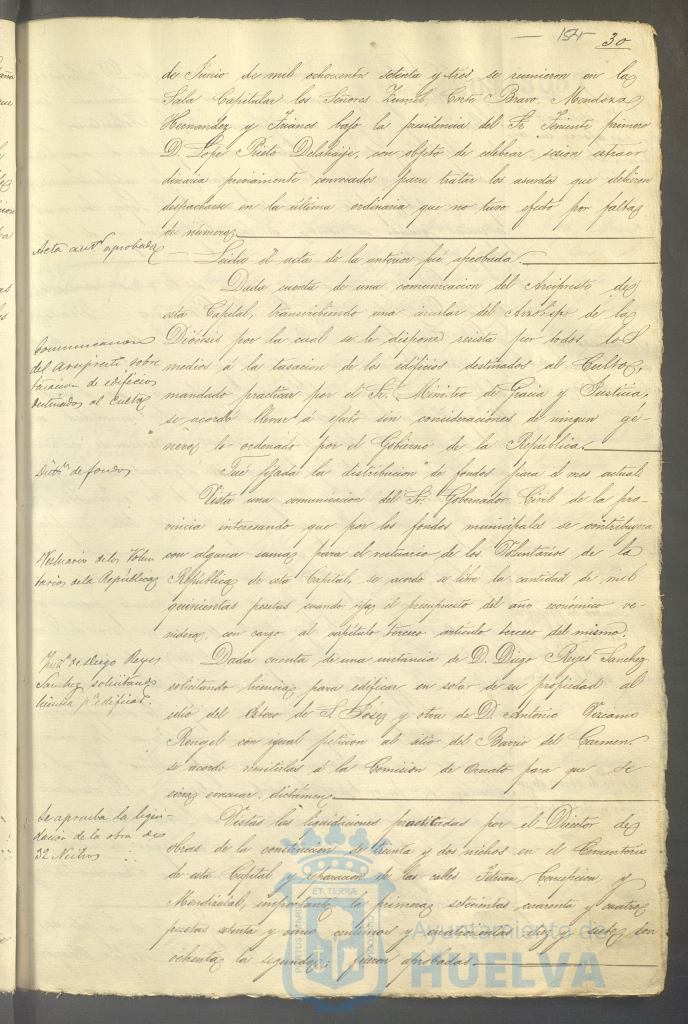 154 30
de Junio de mil ochocientos setenta y tres se reunieron en la
Sala Capitular los Señores Zumel, Corto Bravo, Mendoza
Hernandez y Trianes bajo la presidencia del Sr Teniente primero
D. Lope Prieto Delahaije, con objeto de celebrar sesion estraor
dinaria previamente convocados para tratar los asuntos que debieron
despacharse en la última ordinaria que no tuvo efecto por falta
de numero
Acta antr. aprobada
Leida el acta de la anterior fué aprobada.
Dada cuenta de una comunicacion del Arcipreste de
esta Capital, transcribiendo una circular del Arzobispo de la
Comunicacion
del Arcipreste sobre
tasacion de edificios
destinados al Culto
Diócesis por la cual se le dispone resista por todos los
medios á la tasacion de los edificios destinados al Culto,
mandado practicar por el Sr. Ministro de Gracia y Justicia,
se acordó llevar á efecto sin consideraciones de ningun gé-
nero lo ordenado por el Gobierno de la República.
Distn. de fondos
Fué fijada la distribucion de fondos para el mes actual.
Vista una comunicacion del Sr. Gobernador Civil de la pro-
vincia interesando que por los fondos municipales se contribuyera
Vestuario de los Volun
tarios de la República
con alguna suma para el vestuario de los Voluntarios de la
República de esta Capital, se acordó se libre la cantidad de mil
quinientas pesetas cuando rija el presupuesto del año económico ve-
nidero, con cargo al capítulo tercero artículo tercero del mismo.
de Diego Reyes
Sanchez solicitando
licencia pa. edificar.
Dada cuenta de una instancia de D. Diego Reyes Sanchez
solicitando licencia para edificar en solar de su propiedad al
sitio del Estero de S. José y otra de D. Antonio Viziano
Rengel con igual peticion al sitio del Barrio del Carmen.
se acordó remitirlas á la Comision de Ornato para que se
sirva evacuar dictámen
Se aprueba la liqui-
dacion de la obra de
32 Nichos
Vistas las liquidaciones practicadas por el Director de
obras de la construccion de treinta y dos nichos en el Cementerio
de esta Capital y reparacion de las calles Tetuan, Concepcion y
Mendizabal, importante la primera setecientas cuarenta y cuatro
pesetas setenta y cinco centimos y cuatrocientas diez y siete con
ochenta la segunda, fueron aprobadas.
ET TERRÆ
Ayuntamiento de
HUELVA